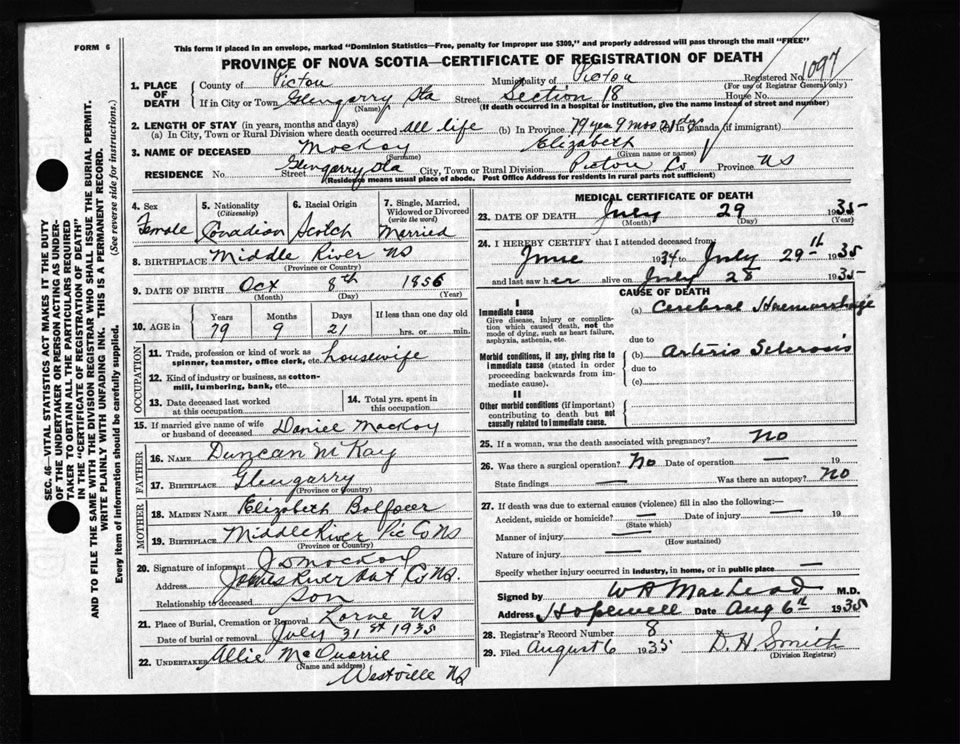 FORM 6
This form if placed in an envelope, marked "Dominion Statistics—Free, penalty for improper use $300," and properly addressed will pass through the mail "FREE"
PROVINCE OF NOVA SCOTIA—CERTIFICATE OF REGISTRATION OF DEATH
1. PLACE OF DEATH
County of Pictou Municipality of Pictou Registered No. 1097
(For use of Registrar General only)
If in City or Town Glengarry Sta Street Section 18 House No.
(Name) (If death occurred in a hospital or institution, give the name instead of street and number)
2. LENGTH OF STAY (in years, months and days)
(a) In City, Town or Rural Division where death occurred all life (b) In Province 79 yrs 9 mos 21 dys (c) In Canada (if immigrant)
3. NAME OF DECEASED MacKay Elizabeth
(Surname) (Given name or names)
RESIDENCE No. Street Glengarry Sta City, Town or Rural Division Pictou Co Province NS
(Residence means usual place of abode. Post Office Address for residents in rural parts not sufficient)
4. Sex
Female
5. Nationality
(Citizenship)
Canadian
6. Racial Origin
Scotch
7. Single, Married, Widowed or Divorced
(write the word)
Married
8. BIRTHPLACE Middle River NS
(Province or Country)
9. DATE OF BIRTH Oct 8th 1856
(Month) (Day) (Year)
10. AGE in
Years Months Days If less than one day old
79 9 21 hrs. or min.
OCCUPATION
11. Trade, profession or kind of work as spinner, teamster, office clerk, etc. housewife
12. Kind of industry or business, as cotton-mill, lumbering, bank, etc.
13. Date deceased last worked at this occupation
14. Total yrs. spent in this occupation
15. If married give name of wife or husband of deceased Daniel MacKay
FATHER
16. NAME Duncan McKay
17. BIRTHPLACE Glengarry
(Province or Country)
MOTHER
18. MAIDEN NAME Elizabeth Balfoer
19. BIRTHPLACE Middle River Pic Co NS
(Province or Country)
20. Signature of informant J D MacKay
Address James River Ant Co NS.
Relationship to deceased Son
21. Place of Burial, Cremation or Removal Lorne NS
Date of burial or removal July 31st 1935
22. UNDERTAKER Allie McQuarrie
(Name and address)
Westville NS
MEDICAL CERTIFICATE OF DEATH
23. DATE OF DEATH July 29 1935
(Month) (Day) (Year)
24. I HEREBY CERTIFY that I attended deceased from:
June 1934 to July 29th 1935
and last saw her alive on July 28 1935
CAUSE OF DEATH
I
Immediate cause
Give disease, injury or complication which caused death, not the mode of dying, such as heart failure, asphyxia, asthenia, etc.
(a) Cerebral Haemorrhage
due to
Morbid conditions, if any, giving rise to immediate cause (stated in order proceeding backwards from immediate cause).
(b) Arterio Sclerosis
due to
(c)
II
Other morbid conditions (if important) contributing to death but not causally related to immediate cause.
25. If a woman, was the death associated with pregnancy? no
26. Was there a surgical operation? No Date of operation — 19
State findings — Was there an autopsy? No
27. If death was due to external causes (violence) fill in also the following:—
Accident, suicide or homicide? — Date of injury — 19
(State which)
Manner of injury —
(How sustained)
Nature of injury —
Specify whether injury occurred in industry, in home, or in public place —
Signed by W A MacLeod M.D.
Address Hopewell Date Aug 6th 1935
28. Registrar's Record Number 8
29. Filed August 6 1935 D. H. Smith
(Division Registrar)
SEC. 46—VITAL STATISTICS ACT MAKES IT THE DUTY
OF THE UNDERTAKER OR PERSON ACTING AS UNDER-
TAKER TO OBTAIN ALL THE PARTICULARS REQUIRED
IN THE "CERTIFICATE OF REGISTRATION OF DEATH"
AND TO FILE THE SAME WITH THE DIVISION REGISTRAR WHO SHALL ISSUE THE BURIAL PERMIT.
WRITE PLAINLY WITH UNFADING INK. THIS IS A PERMANENT RECORD.
Every item of information should be carefully supplied. (See reverse side for instructions.)